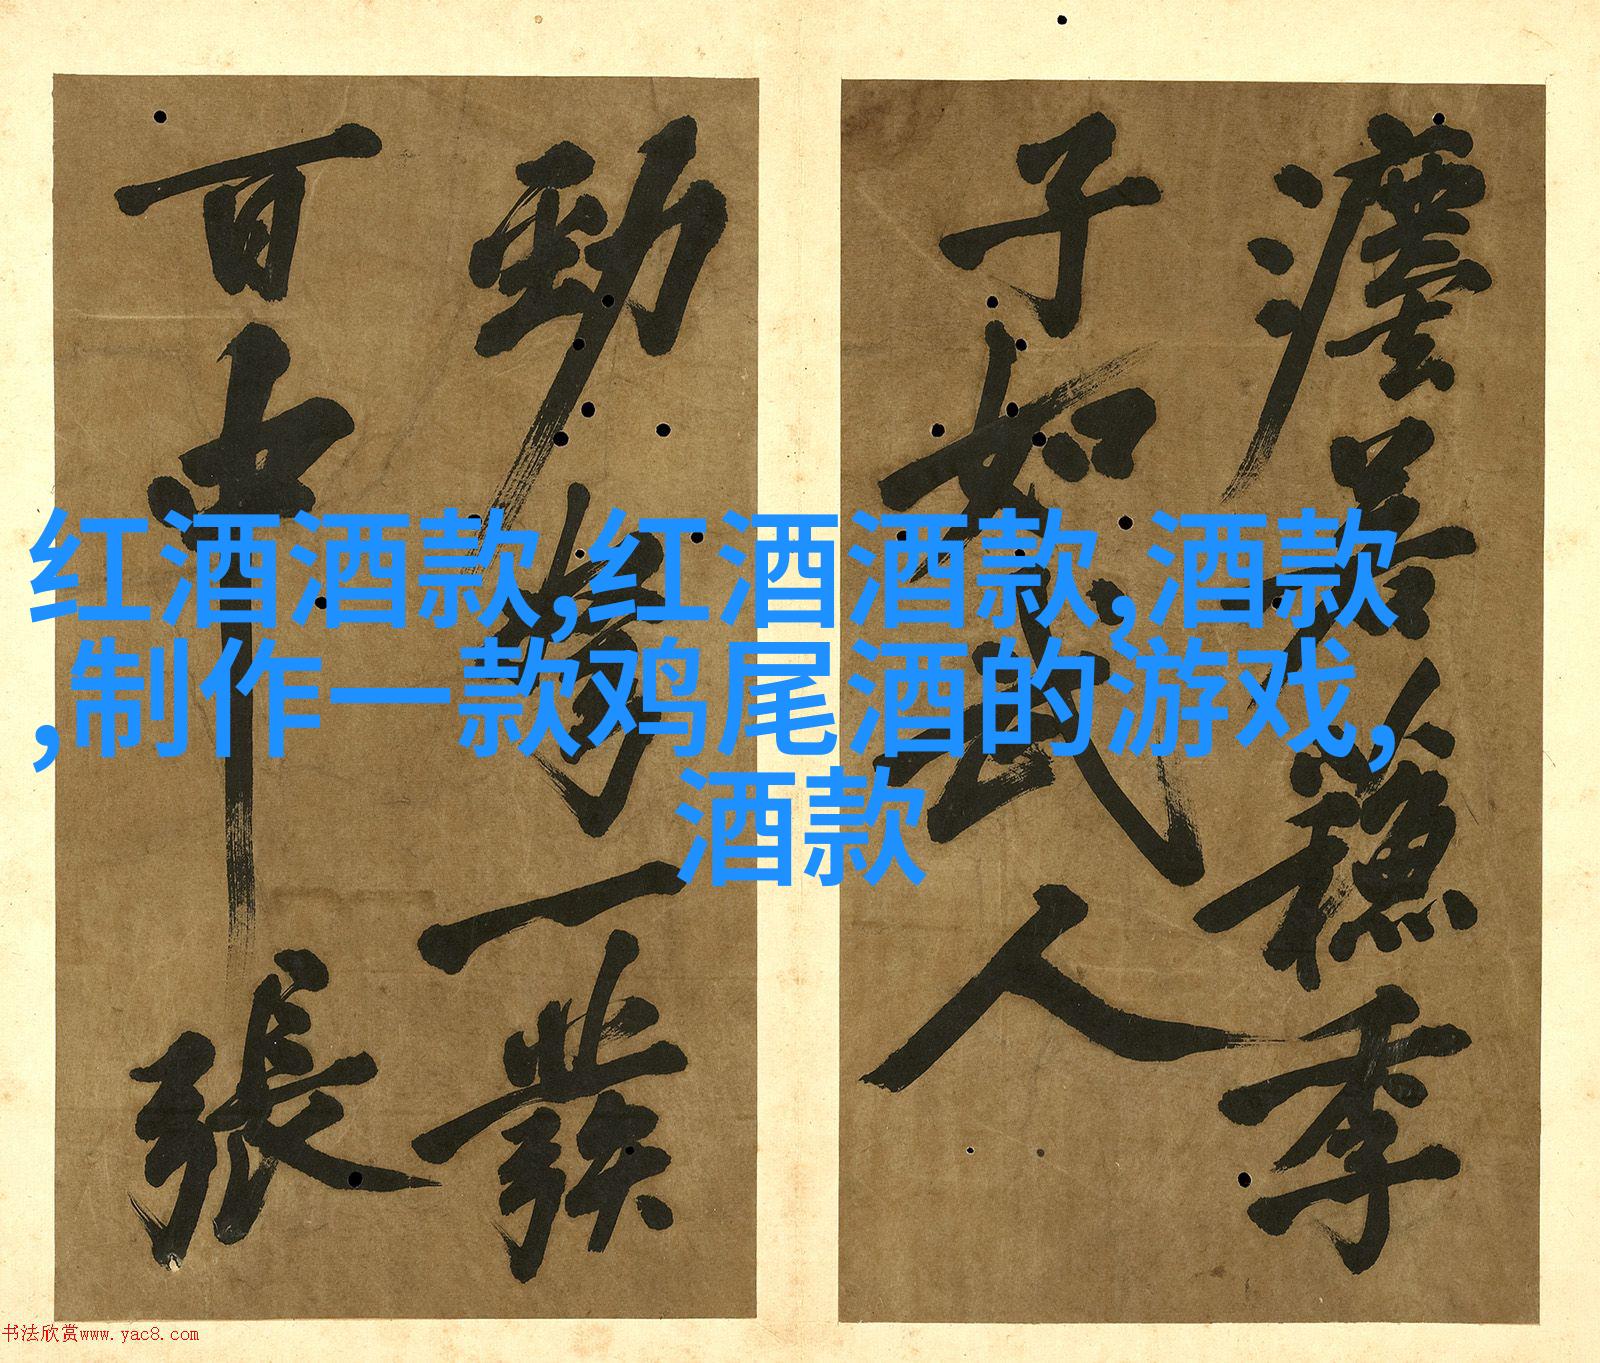 瀍善菴穗季
子如武人
勁弩一發
百中張
红酒酒款,红酒酒款,酒款
,制作一款鸡尾酒的游戏,
酒款
书法欣赏www.yac8.com